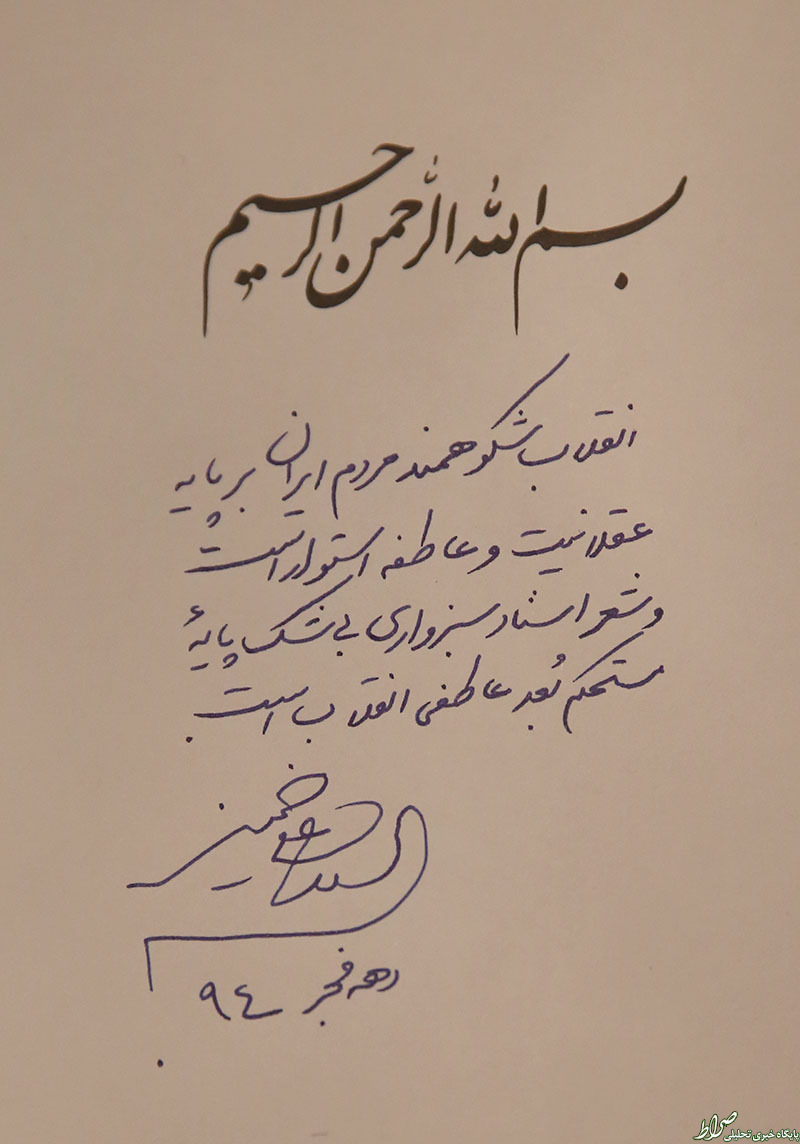 بسم الله الرحمن الرحیم
انقلاب شکوهمند مردم ایران بر پایه
عقلانیت و عاطفه استوار است
و شعر استاد سبزواری بی شک پایهٔ
مستحکم بُعد عاطفی انقلاب است.
خمینی
دهه فجر
٩٤
صراط
پایگاه خبری تحلیلی